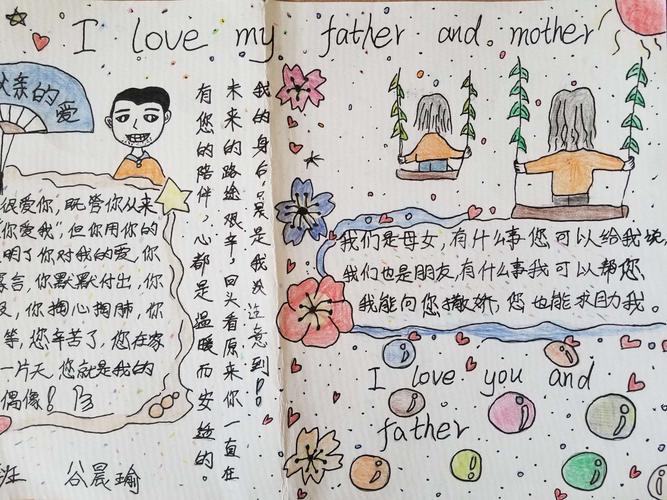 I love my father and mother
父亲的爱
很爱你,既管你从来
你爱我",但你用你的
明了你对我的爱,你
寡言,你默默付出,你
你掏心掏肺,你
等,您辛苦了,您在家
一片天,您就是我的
偶像!
有您的陪伴,心都是温暖而安逸的。
未来的路途艰辛,回头看原来你一直在
我的身后,是我没注意到!
我们是母女,有什么事您可以给我说
我们也是朋友,有什么事我可以帮您,
我能向您撒娇,您也能求助我。
I love you and
father
班 谷晨瑜